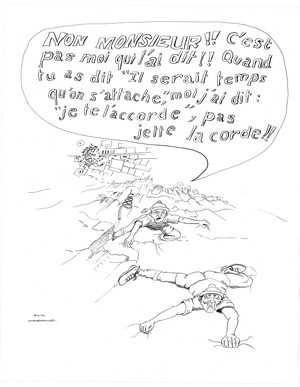 NON MONSIEUR!! C'est
pas moi qui l'ai dit!! Quand
tu as dit "Il serait temps
qu'on s'attache", moi j'ai dit:
"je te l'accorde", pas
jette la corde!!